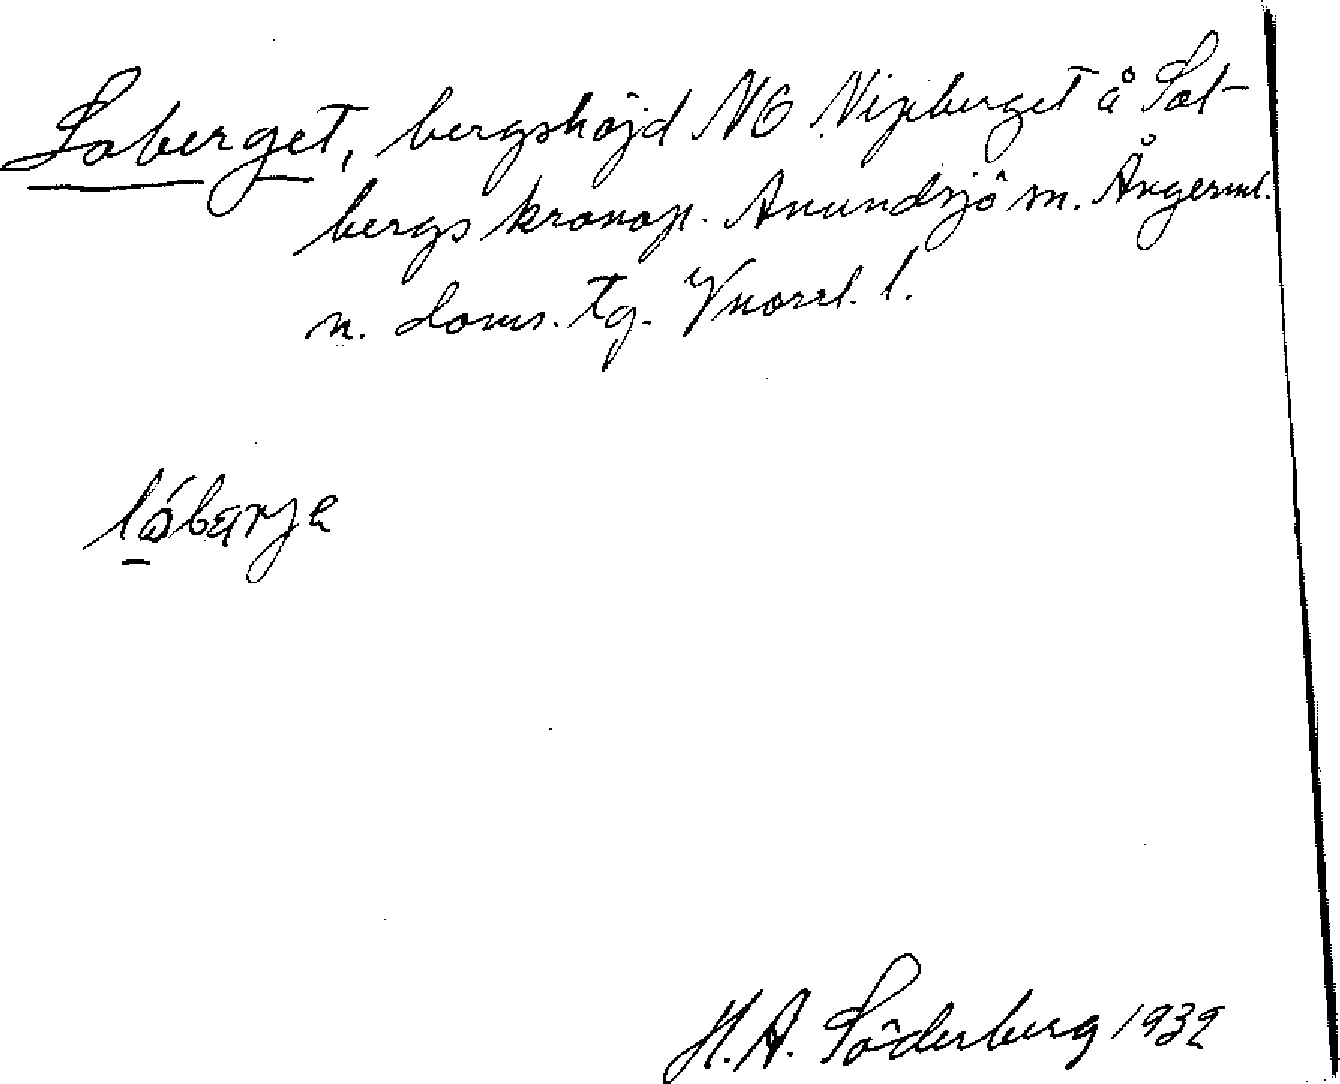 Loberget, bergshöjd NO Nipberget å Sol-
bergs kronop. Anundsjö sn. Ångerml.
n. doms. tg. Vnorrl. l.
lóbærje
H. A. Söderberg 1932